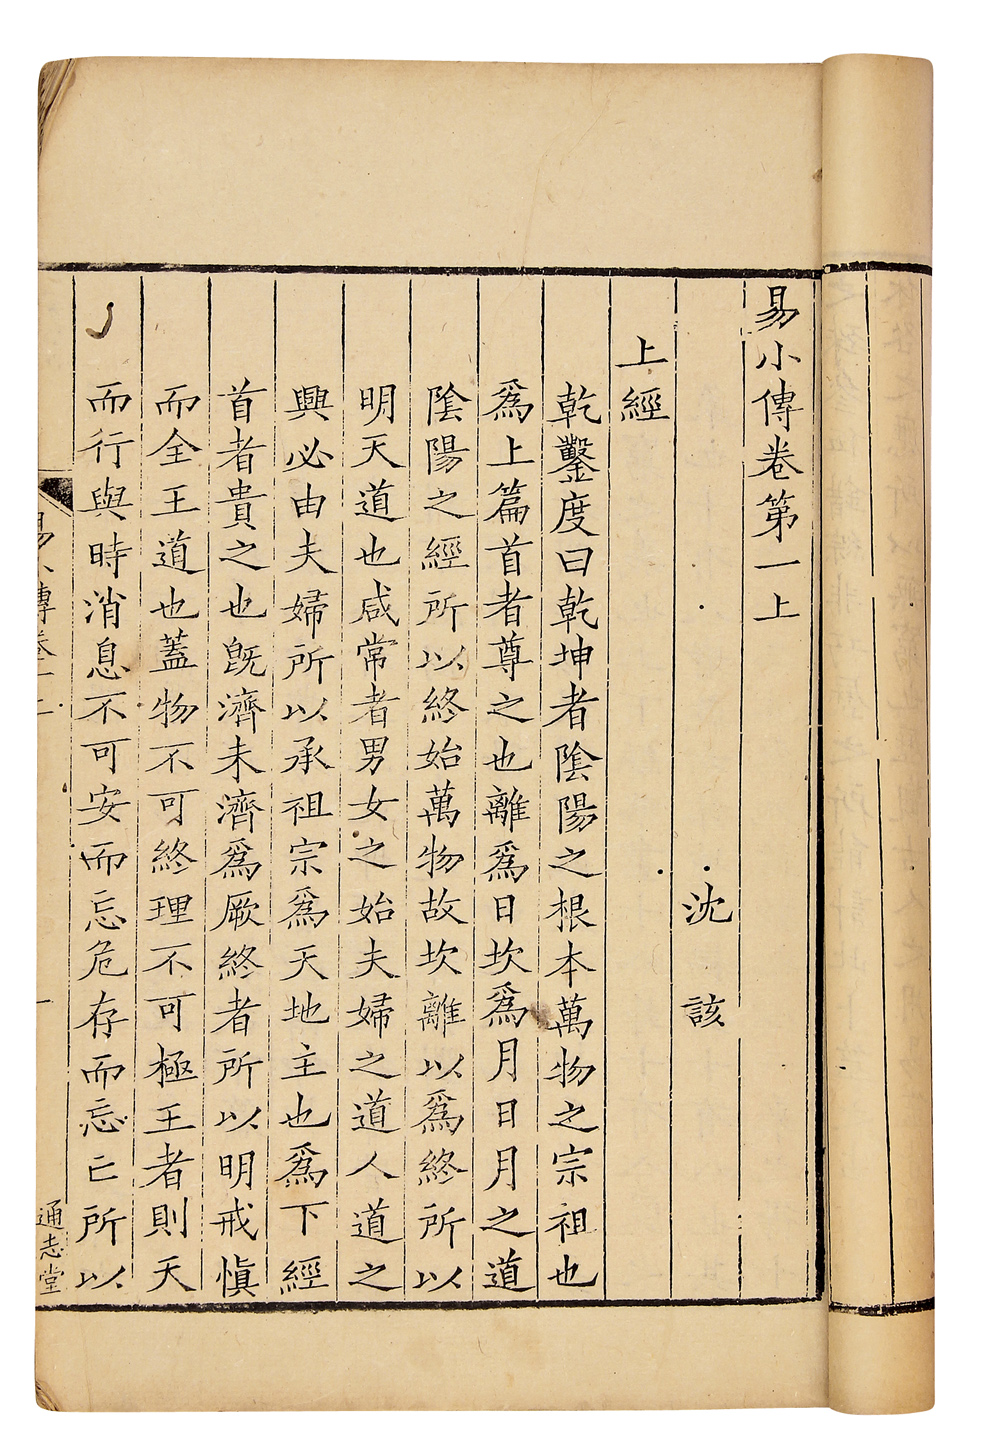 易小傳卷第一上
沈該
上經
乾鑿度曰乾坤者陰陽之根本萬物之宗祖也
為上篇首者尊之也離為日坎為月日月之道
陰陽之經所以終始萬物故坎離以為終所以
明天道也咸常者男女之始夫婦之道人道之
興必由夫婦所以承祖宗為天地主也為下經
首者貴之也既濟未濟為厥終者所以明戒慎
而全王道也蓋物不可終理不可極王者則天
而行與時消息不可安而忘危存而忘亡所以
易小傳卷一上
一
通志堂